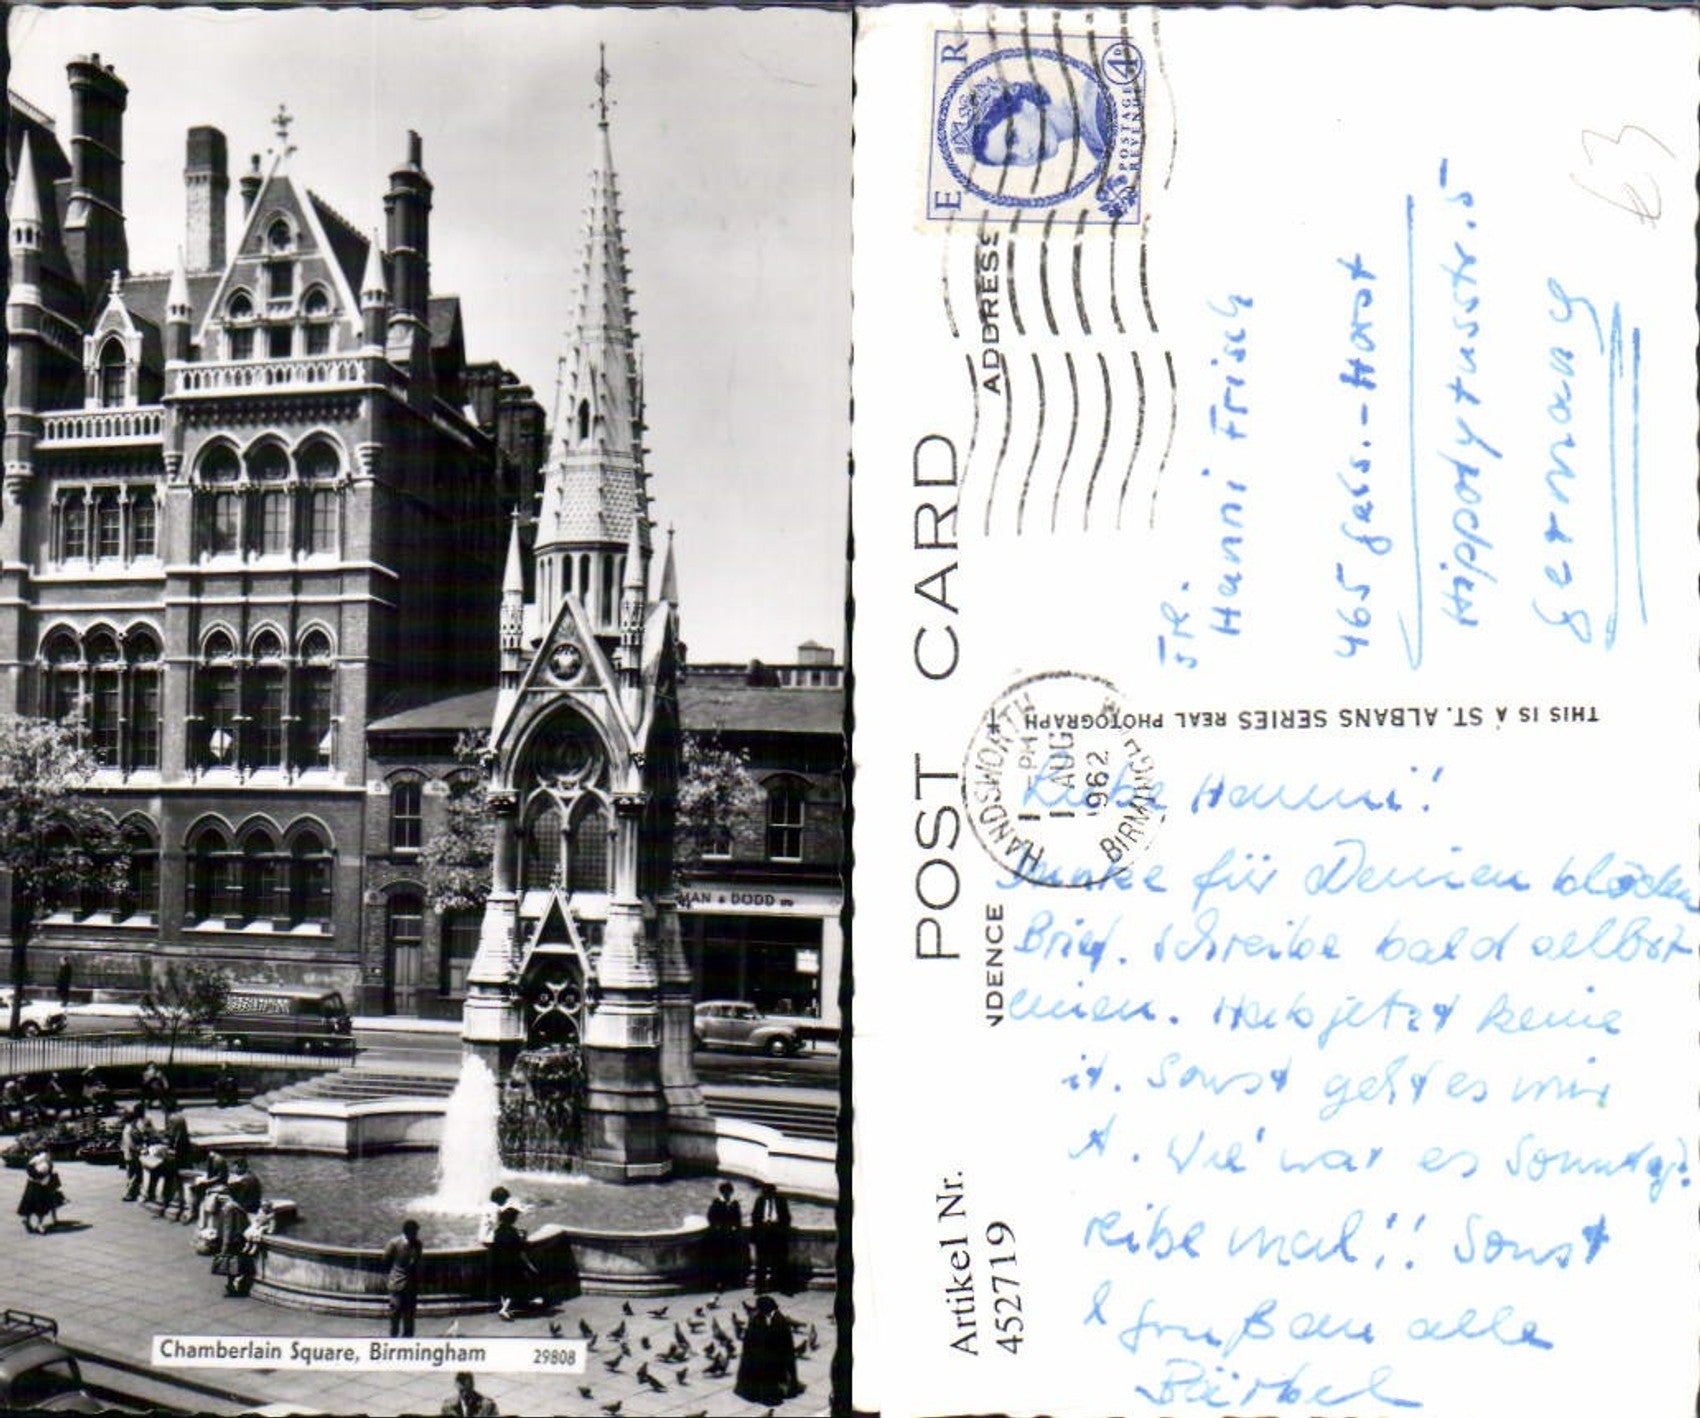 MAN & DODD
Chamberlain Square, Birmingham 29808
POST CARD
ADDRESS
NDENCE
E R
POSTAGE
REVENUE
4D
HANDSWORTH
1 - PM
1 AUG
1962
BIRMINGH
THIS IS A ST. ALBANS SERIES REAL PHOTOGRAPH
Frl.
Hanni Frisch
465 Gels.-Horst
Germany
£3
Liebe Hanni!
Danke für Deinen blöden
Brief. Schreibe bald selbst
einen. Hab jetzt keine
it. Sonst geht es mir
t. Wie war es Sonntag?
reibe mal!! Sonst
Gruß an alle
Bärbel
Artikel Nr.
452719